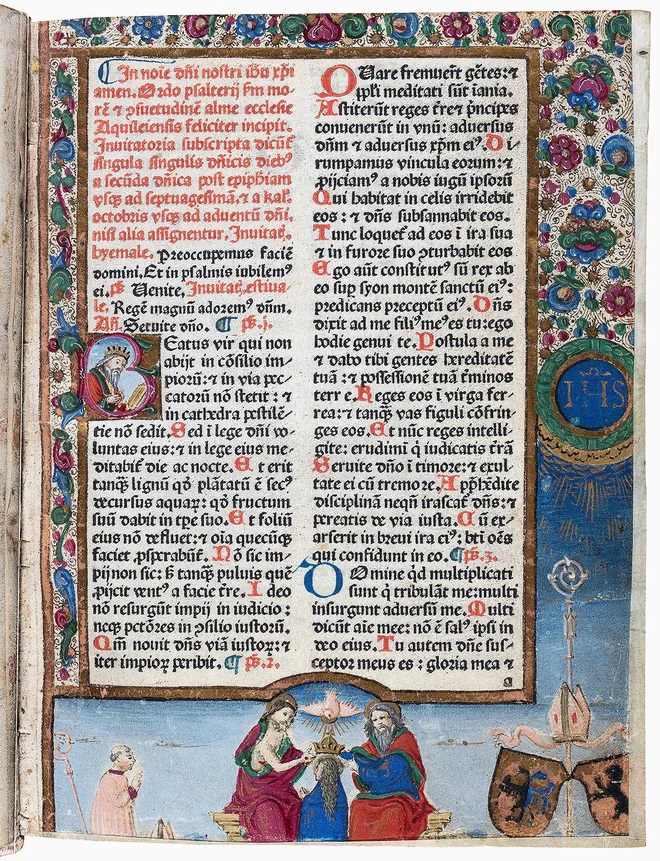 In noie dñi nostri ihũ xp̄i
amen. Ordo psalterij ẜm mo-
rē & ꝯsuetudinē alme ecclesie
Aquileiensis feliciter incipit.
Inuitatoria subscripta dicūt̄
singula singulis dñicis dieb⁹
a secūda dñica post epiph̄iam
vsꝗ ad septuagesimā, & a kal.
octobris vsꝗ ad aduentū dñi.
nisi alia assignentur. Inuitat.
hyemale. Preoccupemus faciē
domini, Et in psalmis iubilem⁹
ei. p̄s Uenite, Inuitat. estiua-
le. Regē magnū adorem⁹ dñm.
Añ. Seruite dño. ¶ p̄s. j.
Beatus vir qui non
abijt in cōsilio im-
piorū: & in via pec-
catorū nō stetit: &
in cathedra pestilē-
tie nō sedit. Sed ī lege dñi vo-
luntas eius: & in lege eius me-
ditabit̄ die ac nocte. Et erit
tanꝗ̄ lignū qd̄ plātatū ē sec⁹
decursus aquaꝝ: qd̄ fructum
suū dabit in tp̄e suo. Et foliū
eius nō defluet: & oīa quecūꝗ
faciet ꝓsꝑabūt̄. Nō sic im-
pij non sic: s̄ tanꝗ̄ puluis quē
ꝓijcit vent⁹ a facie t̄re. Ideo
nō resurgūt impij in iudicio:
neꝗ pctōres in ꝯsilio iustorū.
Qm̄ nouit dñs viā iustoꝝ: &
iter impioꝝ peribit. ¶ p̄s. 2.
Quare fremuer̄t gētes: &
ppl̄i meditati sūt īania.
Astiterūt reges t̄re & pͥncipes
conuenerūt in vnū: aduersus
dñm & aduersus xp̄m ei⁹. Di-
rumpamus vincula eorum: &
ꝓijciam⁹ a nobis iugū ipsorū
Qui habitat in celis irridebit
eos: & dñs subsannabit eos.
Tunc loquet̄ ad eos ī ira sua
& in furore suo ꝯturbabit eos
Ego aūt constitut⁹ sū rex ab
eo sup syon montē sanctū ei⁹:
predicans preceptū ei⁹. Dñs
dixit ad me fili⁹ me⁹ es tu: ego
hodie genui te. Postula a me
& dabo tibi gentes hereditatē
tuā: & possessionē tuā t̄minos
terre. Reges eos ī virga fer-
rea: & tanꝗ̄ vas figuli cōfrin-
ges eos. Et nūc reges intelli-
gite: erudimī qͥ iudicatis t̄rā
Seruite dño ī timore: & exul-
tate ei cū tremore. Appͤhēdite
disciplinā neqñ irascat̄ dñs: &
pereatis de via iusta. Cū ex-
arserit in breui ira ei⁹: bt̄i oēs
qui confidunt in eo. ¶ p̄s. 3.
Domine qͥd multiplicati
sunt qͥ tribulāt me: multi
insurgunt aduersū me. Multi
dicūt aīe mee: nō ē sal⁹ ipsi in
deo eius. Tu autem dñe sus-
ceptor meus es: gloria mea &
a
IHS